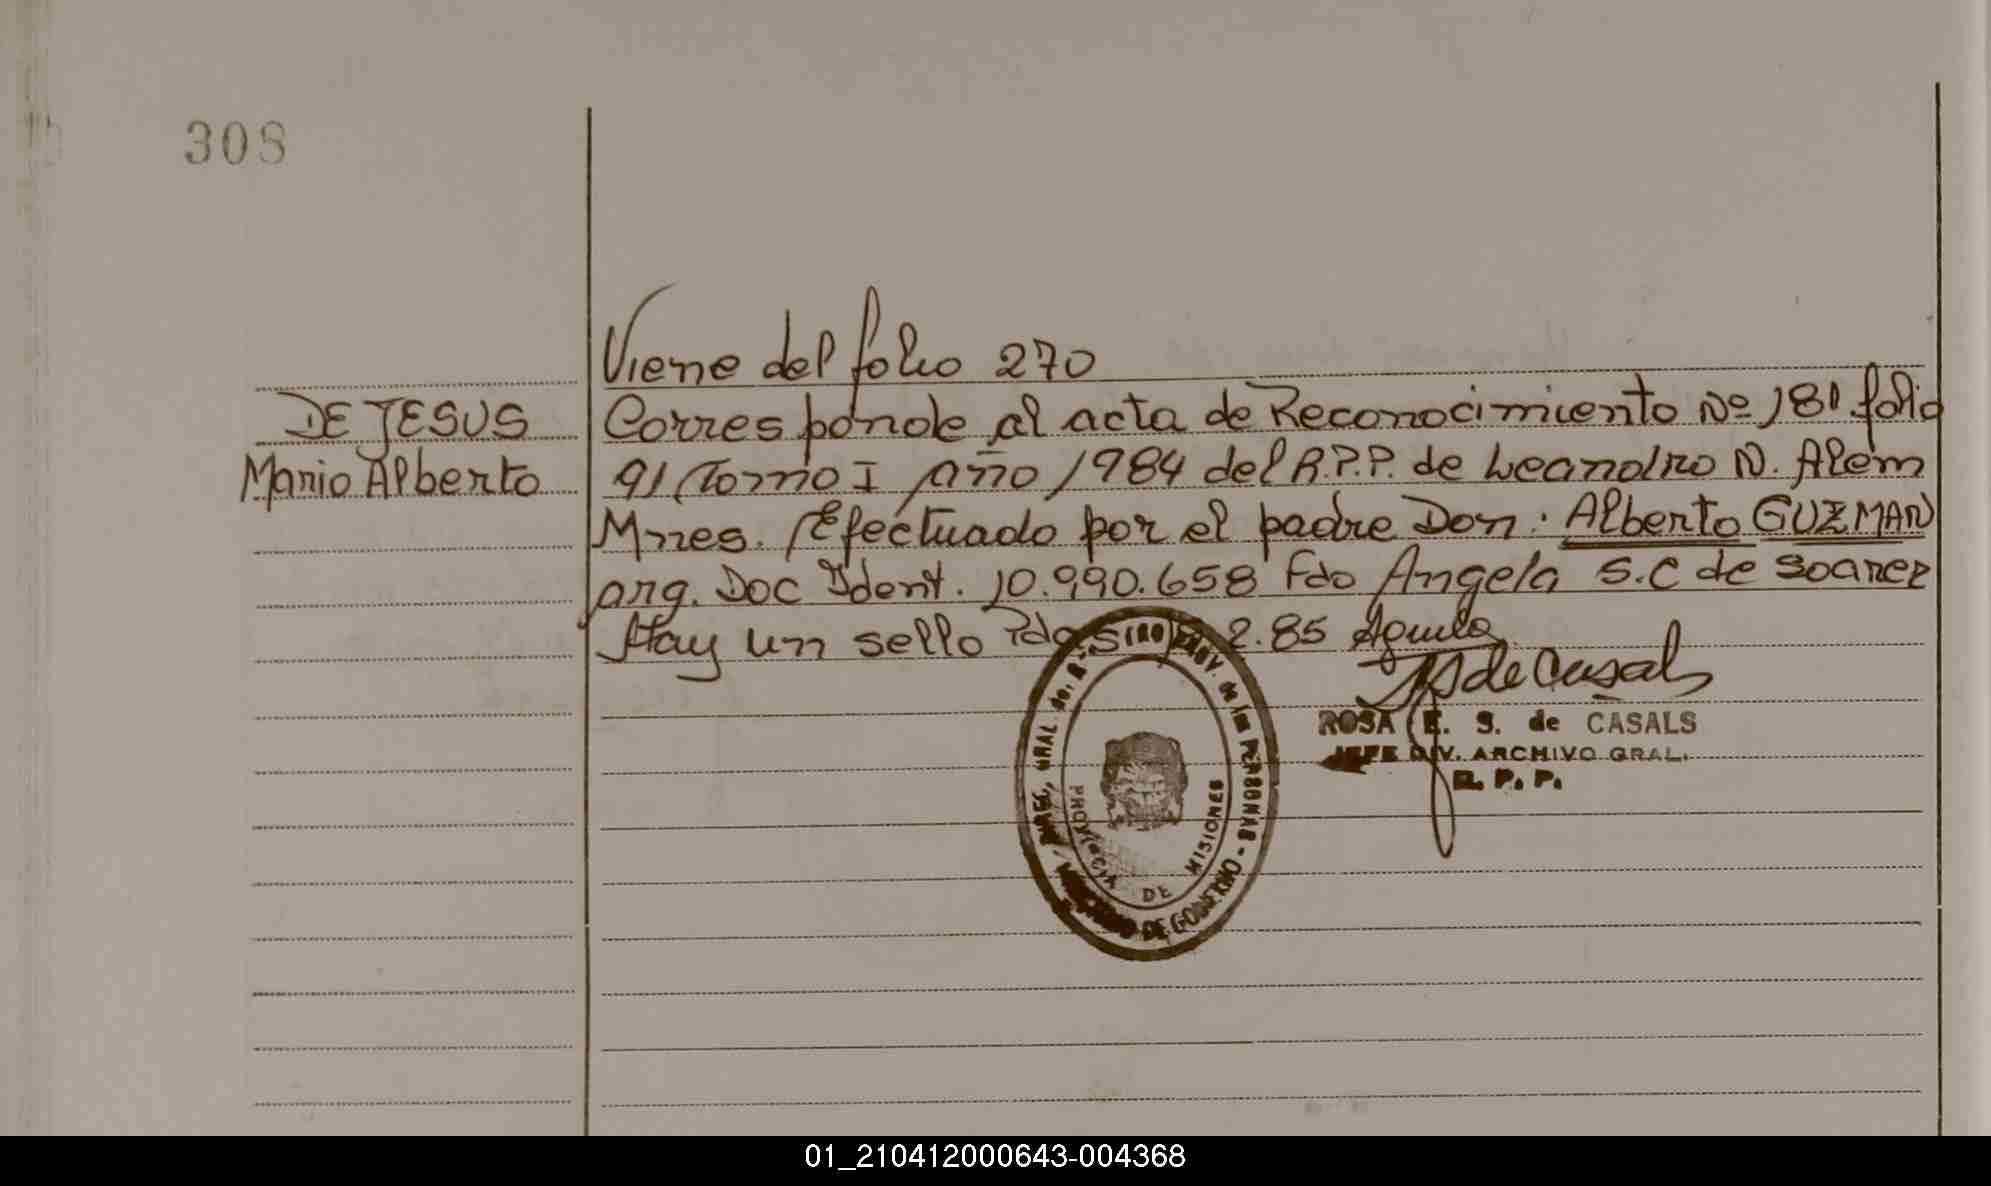 308
Viene del folio 270
DE JESUS
Mario Alberto
Corresponde al acta de Reconocimiento Nº 181 folio
91 Tomo I año 1984 del R.P.P. de Leandro N. Alem
Mnes. Efectuado por el padre Don: Alberto GUZMAN
arg. Doc Ident. 10.990.658 Fdo Angela S.C de Soarez
Hay un sello Pdas 2.85 Aguila
de Casals
ROSA E. S. de CASALS
JEFE DIV. ARCHIVO GRAL.
R. P. P.
DIREC. GRAL. de las PERSONAS
PROVINCIA DE MISIONES
DE GOBIERNO
01_210412000643-004368